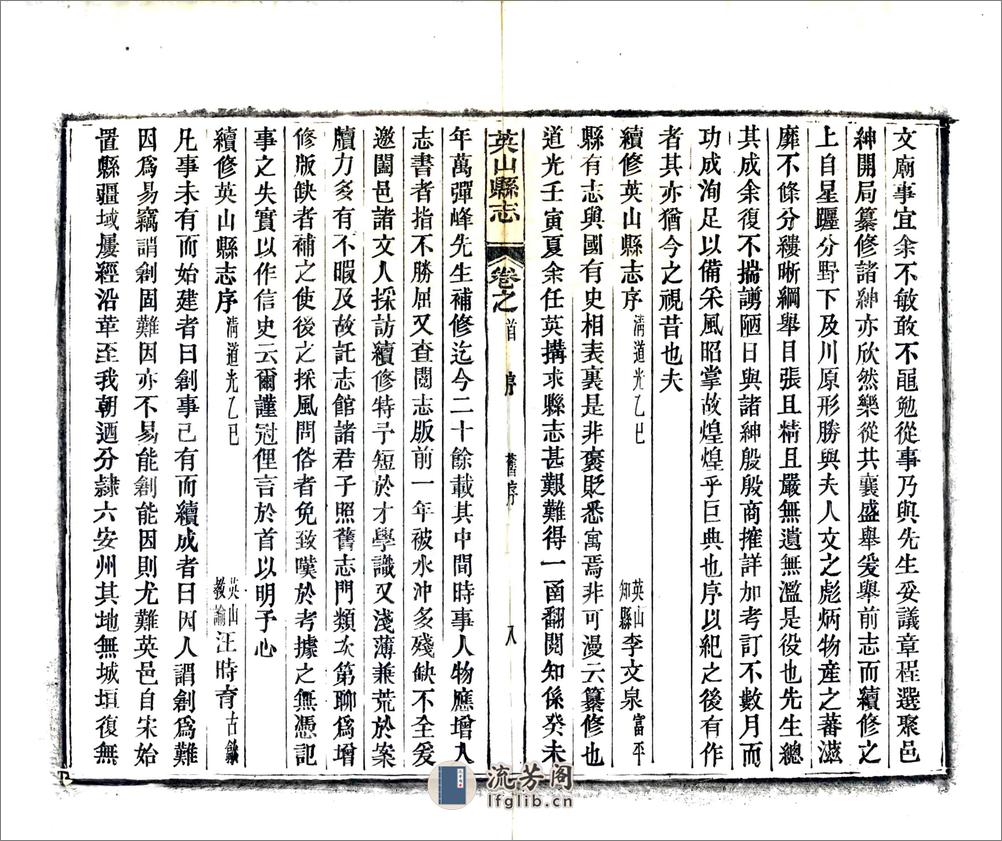 文廟事宜余不敏敢不黽勉從事乃與先生妥議章程選聚邑
紳開局纂修諸紳亦欣然樂從共襄盛舉爰舉前志而續修之
上自星躔分野下及川原形勝與夫人文之彪炳物產之蕃滋
靡不條分縷晰綱舉目張且精且嚴無遺無濫是役也先生總
其成余復不揣譾陋日與諸紳殷殷商搉詳加考訂不數月而
功成洵足以備采風昭掌故煌煌乎巨典也序以紀之後有作
者其亦猶今之視昔也夫
續修英山縣志序 清道光乙巳 英山知縣 李文泉 富平
縣有志與國有史相表裏是非褒貶悉寓焉非可漫云纂修也
道光壬寅夏余任英搆求縣志甚艱難得一函翻閱知係癸未
英山縣志 卷之首 序 舊序 八
年萬彈峰先生補修迄今二十餘載其中間時事人物應增入
志書者指不勝屈又查閱志版前一年被水沖多殘缺不全爰
邀闔邑諸文人採訪續修特予短於才學識又淺薄兼荒於案
牘力多有不暇及故託志館諸君子照舊志門類次第聊為增
修版缺者補之使後之採風問俗者免致嘆於考據之無憑記
事之失實以作信史云爾謹冠俚言於首以明予心
續修英山縣志序 清道光乙巳 英山教諭 汪時育 古歙
凡事未有而始建者曰創事已有而續成者曰因人謂創為難
因為易竊謂創固難因亦不易能創能因則尤難英邑自宋始
置縣疆域屢經沿革至我朝迺分隸六安州其地無城垣復無
流芳阁
lfglib.cn